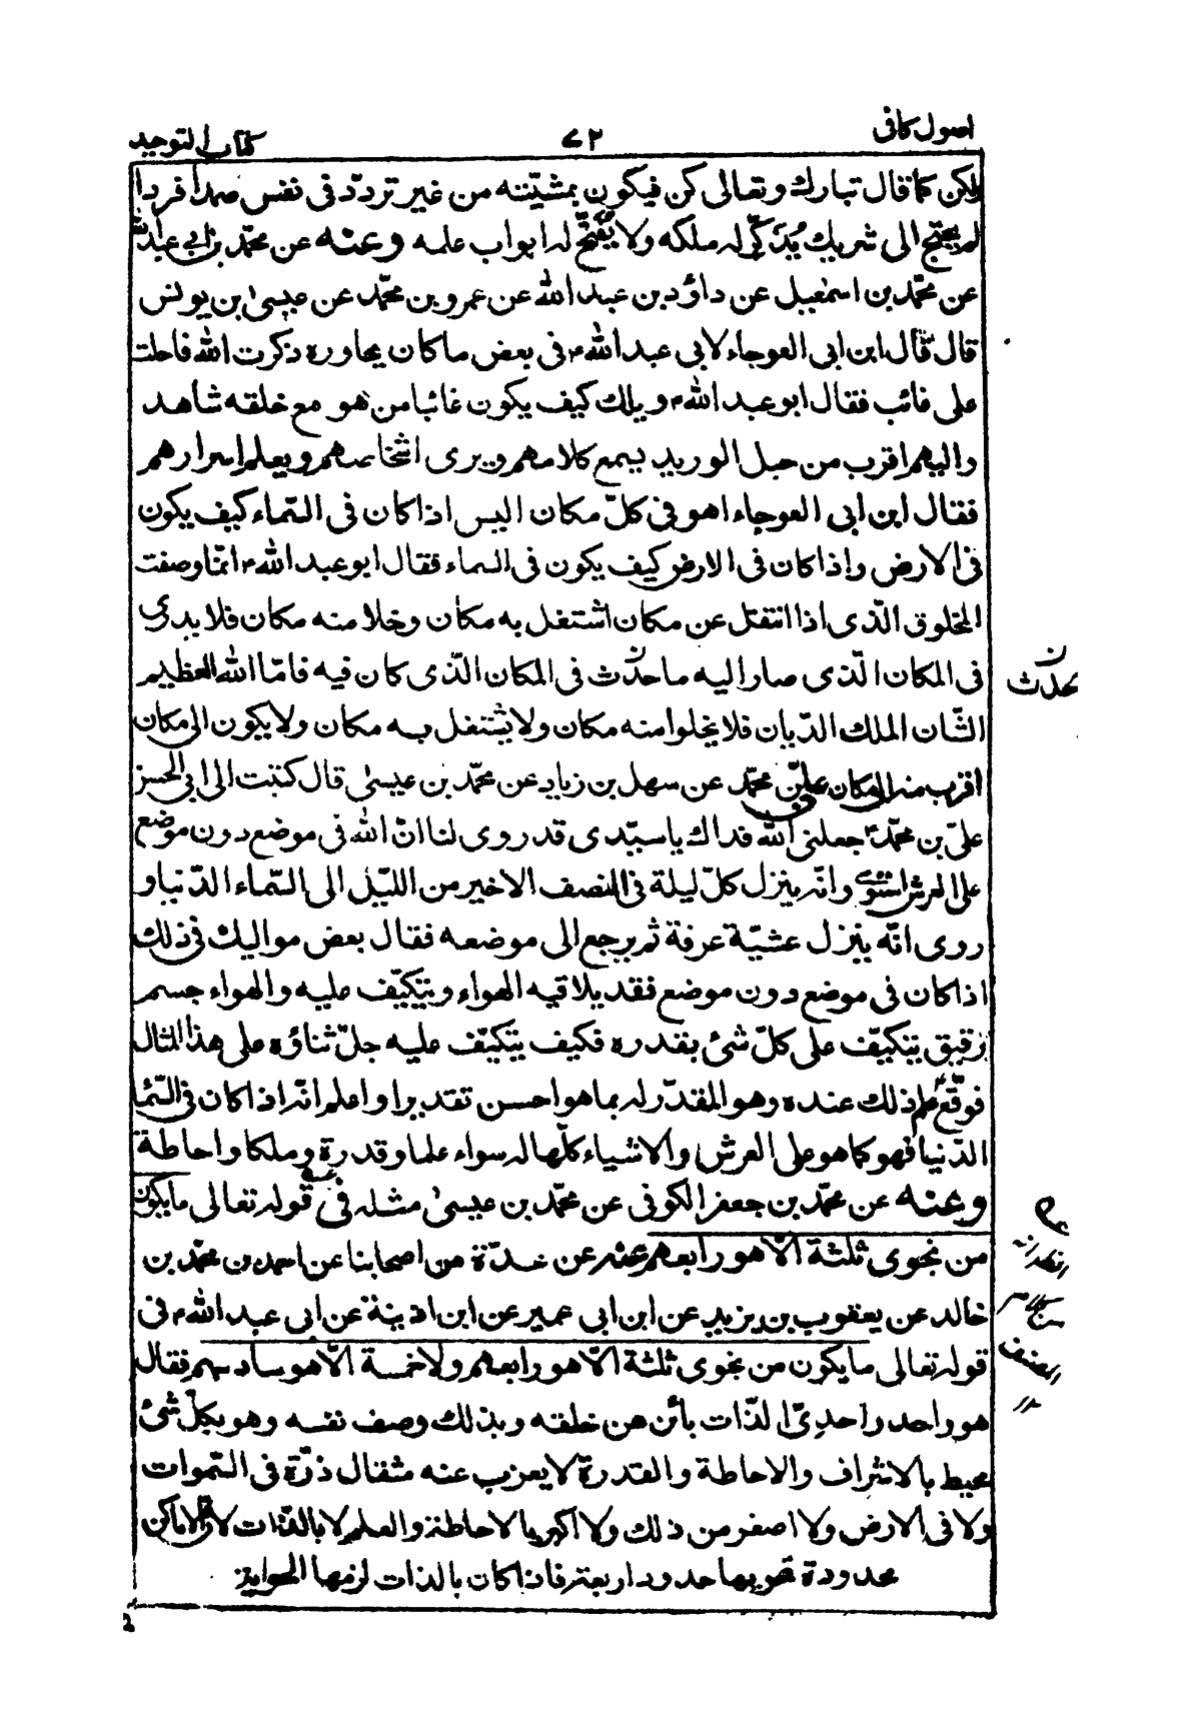 اصول كافى
٧٢
كتاب التوحيد
ولكن كما قال تبارك وتعالى كن فيكون بمشيّته من غير تردّد فى نفس صمدا فردا
لم يحتج الى شريك يُذَكِّر له ملكه ولا يفتح له ابواب علمه وعنه عن محمّد بن ابى عبد الله
عن محمّد بن اسمعيل عن داؤد بن عبد الله عن عمرو بن محمّد عن عيسىٰ بن يونس
قال قال ابن ابى العوجاء لابى عبد الله ع فى بعض ما كان يحاوره ذكرت الله فاحلت
على غائب فقال ابو عبد الله ع ويلك كيف يكون غائبا من هو مع خلقه شاهد
واليهم اقرب من حبل الوريد يسمع كلامهم ويرى اشخاصهم ويعلم اسرارهم
فقال ابن ابى العوجاء اهو فى كلّ مكان اليس اذا كان فى السّماء كيف يكون
فى الارض واذا كان فى الارض كيف يكون فى السماء فقال ابو عبد الله ع انّما وصفت
المخلوق الّذى اذا انتقل عن مكان اشتغل به مكان وخلا منه مكان فلا يدرى
فى المكان الّذى صار اليه ما حدث فى المكان الّذى كان فيه فامّا الله العظيم
ن
يحدث
الشّان الملك الدّيان فلا يخلوا منه مكان ولا يشتغل به مكان ولا يكون الى مكان
اقرب منه الى مكان علىّ بن محمّد عن سهل بن زياد عن محمّد بن عيسىٰ قال كتبت الى ابى الحسن
علىّ بن محمّد ع جعلنى الله فداك يا سيّدى قد روى لنا انّ الله فى موضع دون موضع
على العرش استوى وانّه ينزل كلّ ليلة فى النصف الاخير من اللّيل الى السّماء الدّنيا و
روى انّه ينزل عشيّة عرفة ثم يرجع الى موضعه فقال بعض مواليك فى ذلك
اذا كان فى موضع دون موضع فقد يلاقيه الهواء ويتكيّف عليه والهواء جسم
رقيق يتكيّف على كلّ شئ بقدره فكيف يتكيّف عليه جلّ ثناؤه على هذا المثال
فوقّع ع علم ذلك عنده وهو المقدّر له بما هو احسن تقديرا واعلم انّه اذا كان فى السّماء
الدّنيا فهو كما هو على العرش والاشياء كلّها له سواء علما وقدرة وملكا واحاطة
وعنه عن محمّد بن جعفر الكوفى عن محمّد بن عيسىٰ مثله فى قوله تعالى ما يكون
من نجوى ثلثة الّا هو رابعهم عنه عن عدّة من اصحابنا عن احمد بن محمّد بن
خالد عن يعقوب بن يزيد عن ابن ابى عمير عن ابن اذينة عن ابى عبد الله ع فى
كلام
المصنف
قوله تعالى ما يكون من نجوى ثلثة الّا هو رابعهم ولا خمسة الّا هو سادسهم فقال
هو واحد واحدىّ الذّات بائن من خلقه وبذلك وصف نفسه وهو بكلّ شئ
محيط بالاشراف والاحاطة والقدرة لا يعزب عنه مثقال ذرّة فى السّموات
ولا فى الارض ولا اصغر من ذلك ولا اكبر بالاحاطة والعلم لا بالذّات لانّ الاماكن
محدودة تحويها حدود اربعة فاذا كان بالذات لزمها الحواية